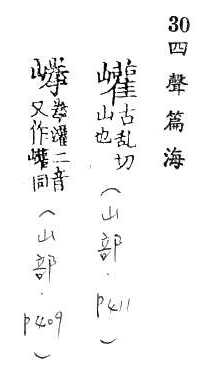 30 四聲篇海
巏古乱切山也(山部.p411)
灌二音又作巏同(山部.p409)